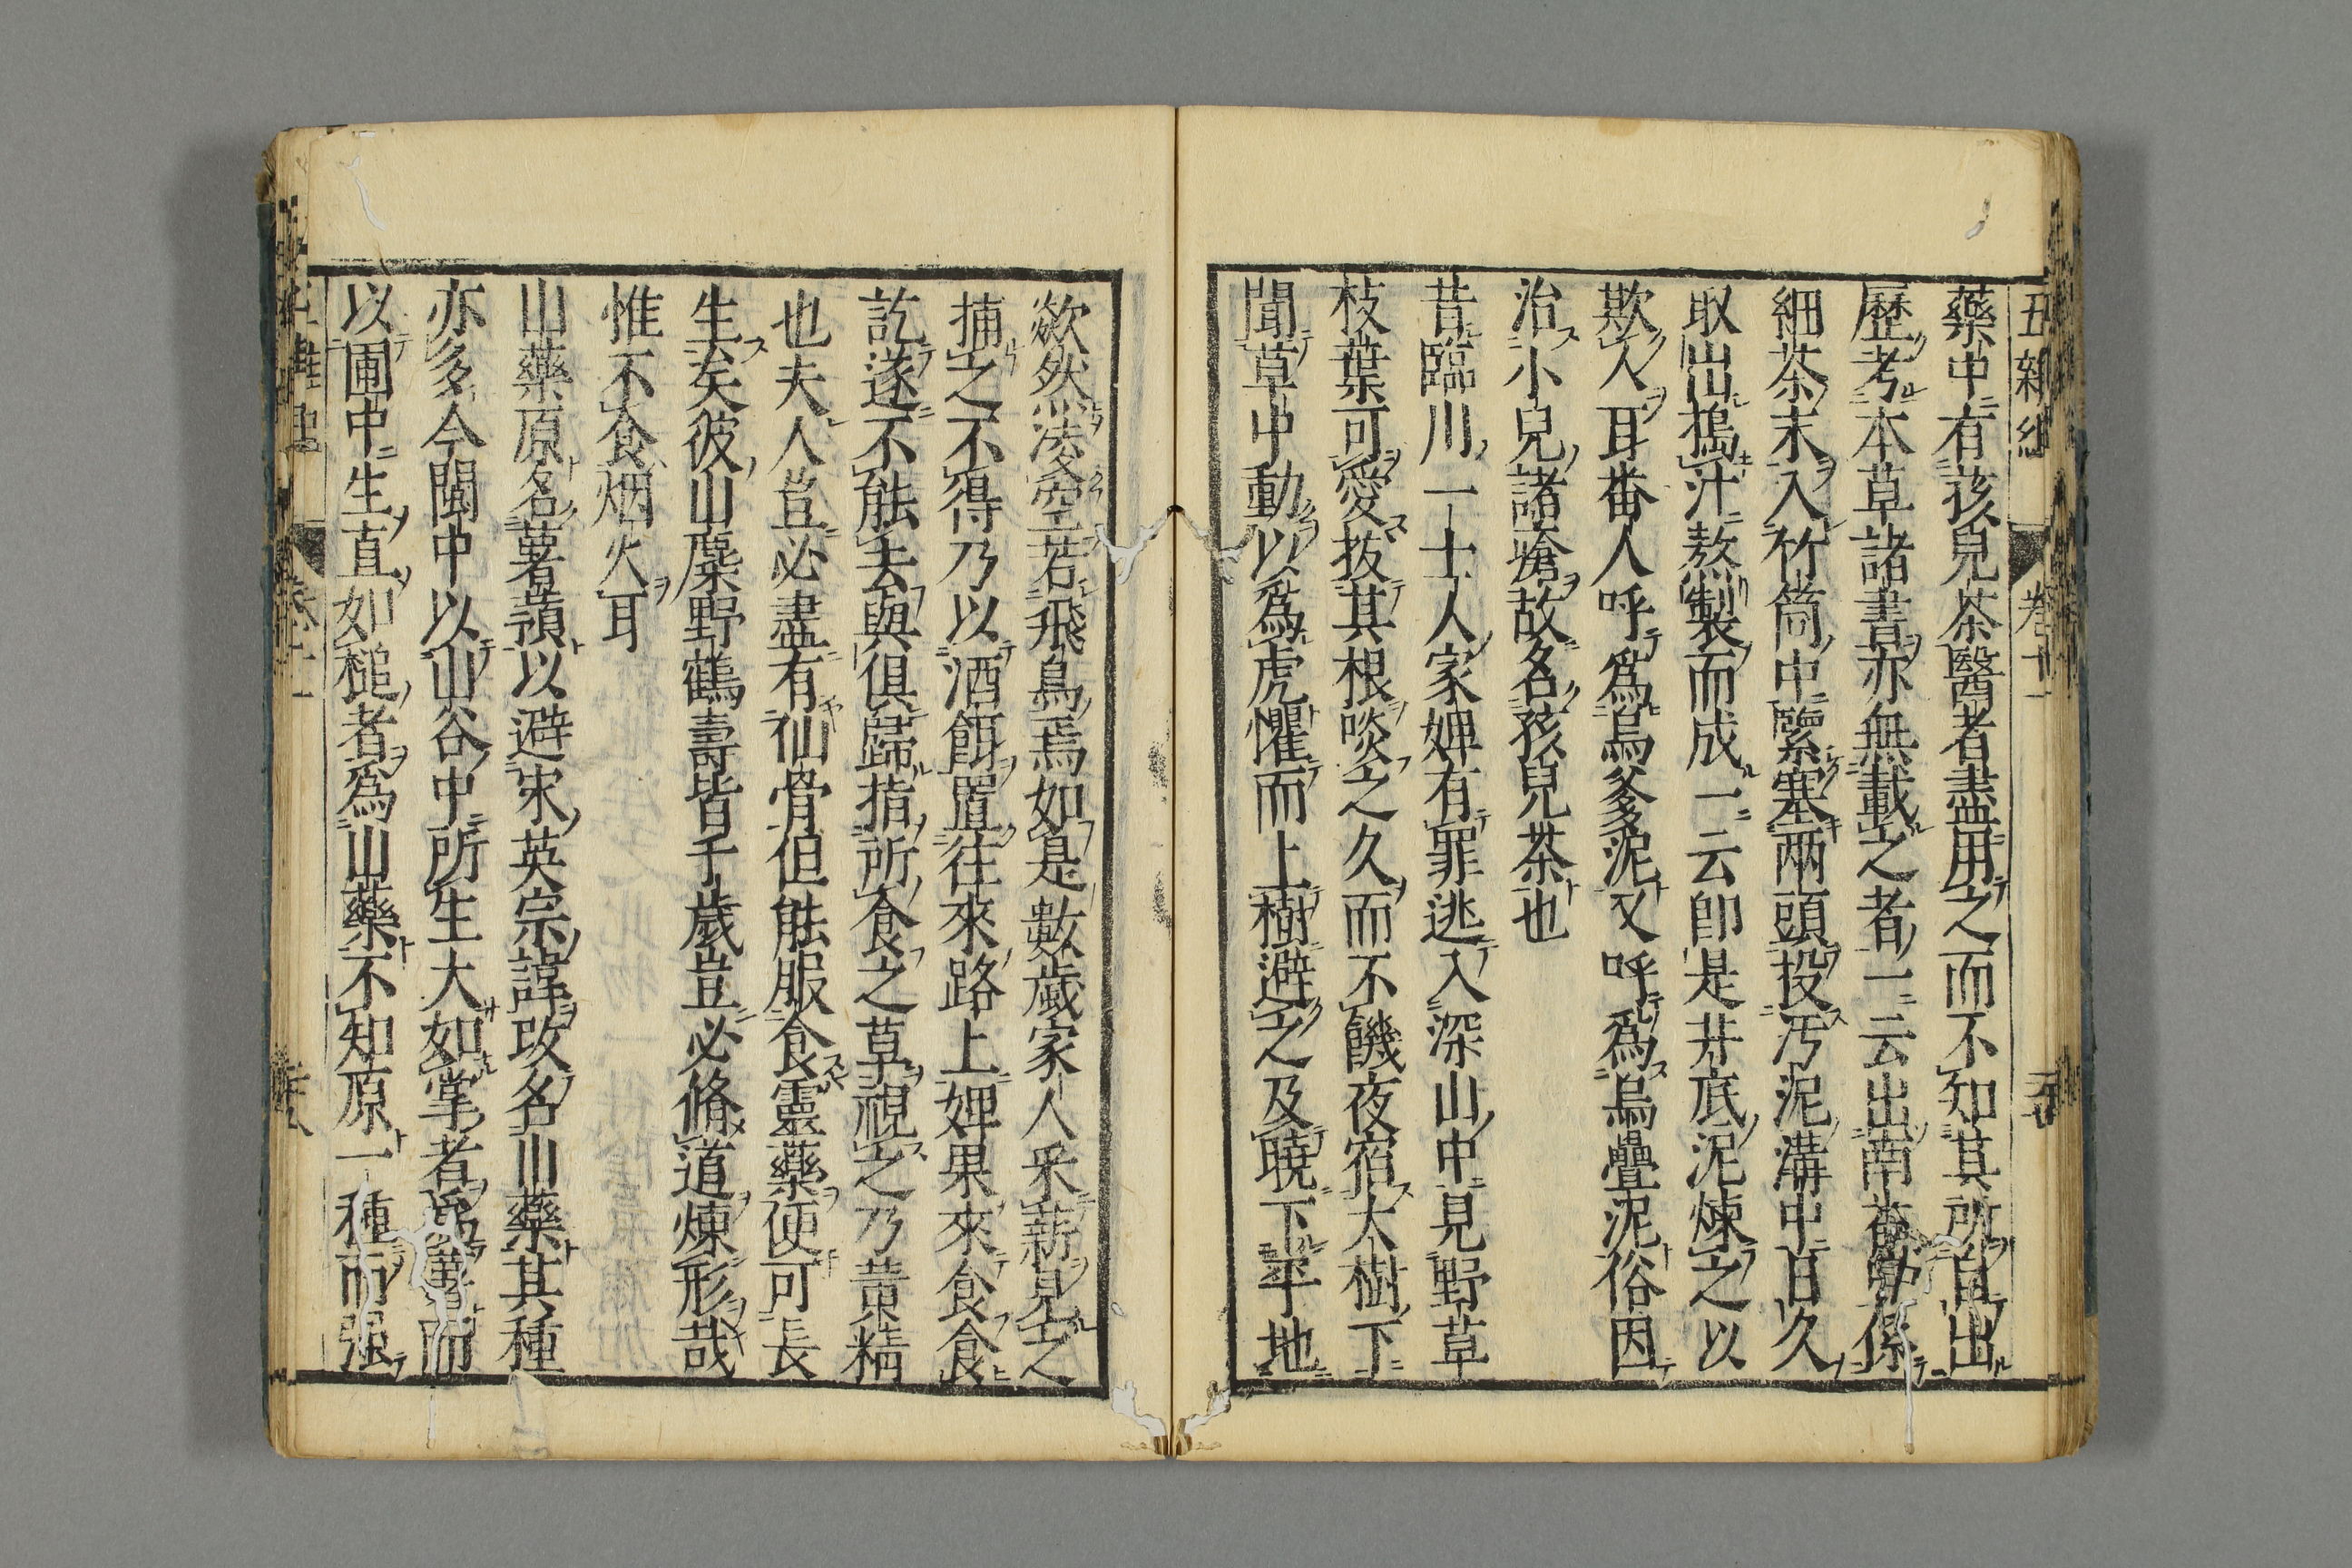 藥中有孩兒茶醫者盡用之而不知其所自出
歷考本草諸書亦無載之者一云出南番係
細茶末入竹筒中緊塞兩頭投汚泥溝中日久
取出搗汁熬製而成一云卽是井底泥煉之以
欺人耳番人呼爲烏爹泥又呼爲烏疊泥俗因
治小兒諸瘡故名孩兒茶也
昔臨川一士人家婢有罪逃入深山中見野草
枝葉可愛拔其根啖之久而不饑夜宿大樹下
聞草中動以爲虎懼而上樹避之及曉下平地
歘然凌空若飛鳥焉如是數歲家人采薪見之
捕之不得乃以酒餌置往來路上婢果來食食
訖遂不能去與俱歸指所食之草視之乃黃精
也夫人豈必盡有仙骨但能服食靈藥便可長
生矣彼山麋野鶴壽皆千歲豈必脩道煉形哉
惟不食烟火耳
山藥原名薯蕷以避宋英宗諱改名山藥其種
亦多今閩中以山谷中所生大如掌者爲薯而
以圃中生直如槌者爲山藥不知原一種而强
五雜組
卷十一